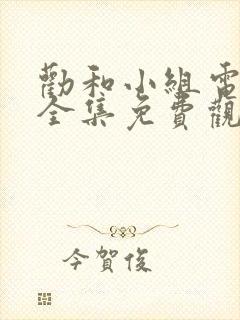 勸和小組電
全集免費觀
今賀俊